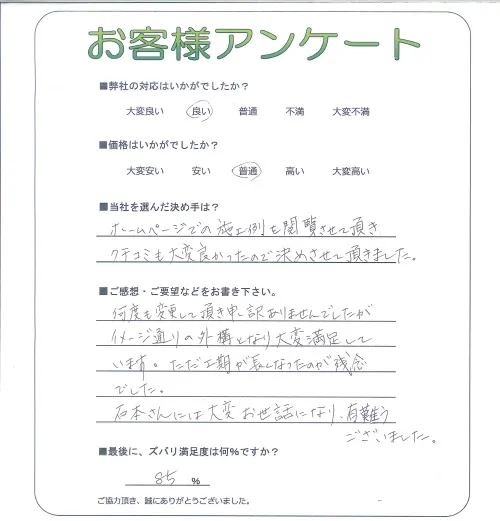 お客様アンケート
■弊社の対応はいかがでしたか？
大変良い 良い 普通 不満 大変不満
■価格はいかがでしたか？
大変安い 安い 普通 高い 大変高い
■当社を選んだ決め手は？
ホームページでの施工例を閲覧させて頂き
クチコミも大変良かったので決めさせて頂きました。
■ご感想・ご要望などをお書き下さい。
何度も変更して頂き申し訳ありませんでしたが
イメージ通りの外構となり大変満足して
います。ただ工期が長くなったのが残念
でした。
石本さんには大変お世話になり、有難う
ございました。
■最後に、ズバリ満足度は何％ですか？
85 ％
ご協力頂き、誠にありがとうございました。